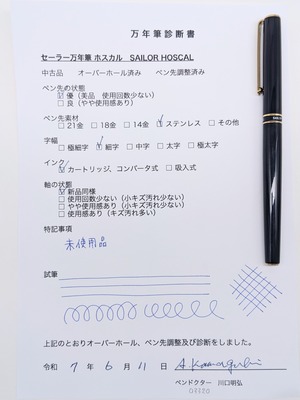 万年筆診断書
セーラー万年筆 ホスカル　SAILOR HOSCAL
中古品　オーバーホール済み　ペン先調整済み
ペン先の状態
☑優（美品　使用回数少ない）
□良（やや使用感あり）
ペン先素材
□21金　□18金　□14金　☑ステンレス　□その他
字幅
□極細字　☑細字　□中字　□太字　□極太字
インク
☑カートリッジ、コンバータ式　□吸入式
軸の状態
☑新品同様
□使用回数少ない（小キズ汚れ少ない）
□やや使用感あり（小キズ汚れ少ない）
□使用感あり（キズ汚れ多い）
特記事項
未使用品
試筆
上記のとおりオーバーホール、ペン先調整及び診断をしました。
令和 7 年 6 月 11 日 A. Kawaguchi
ペンドクター　川口明弘